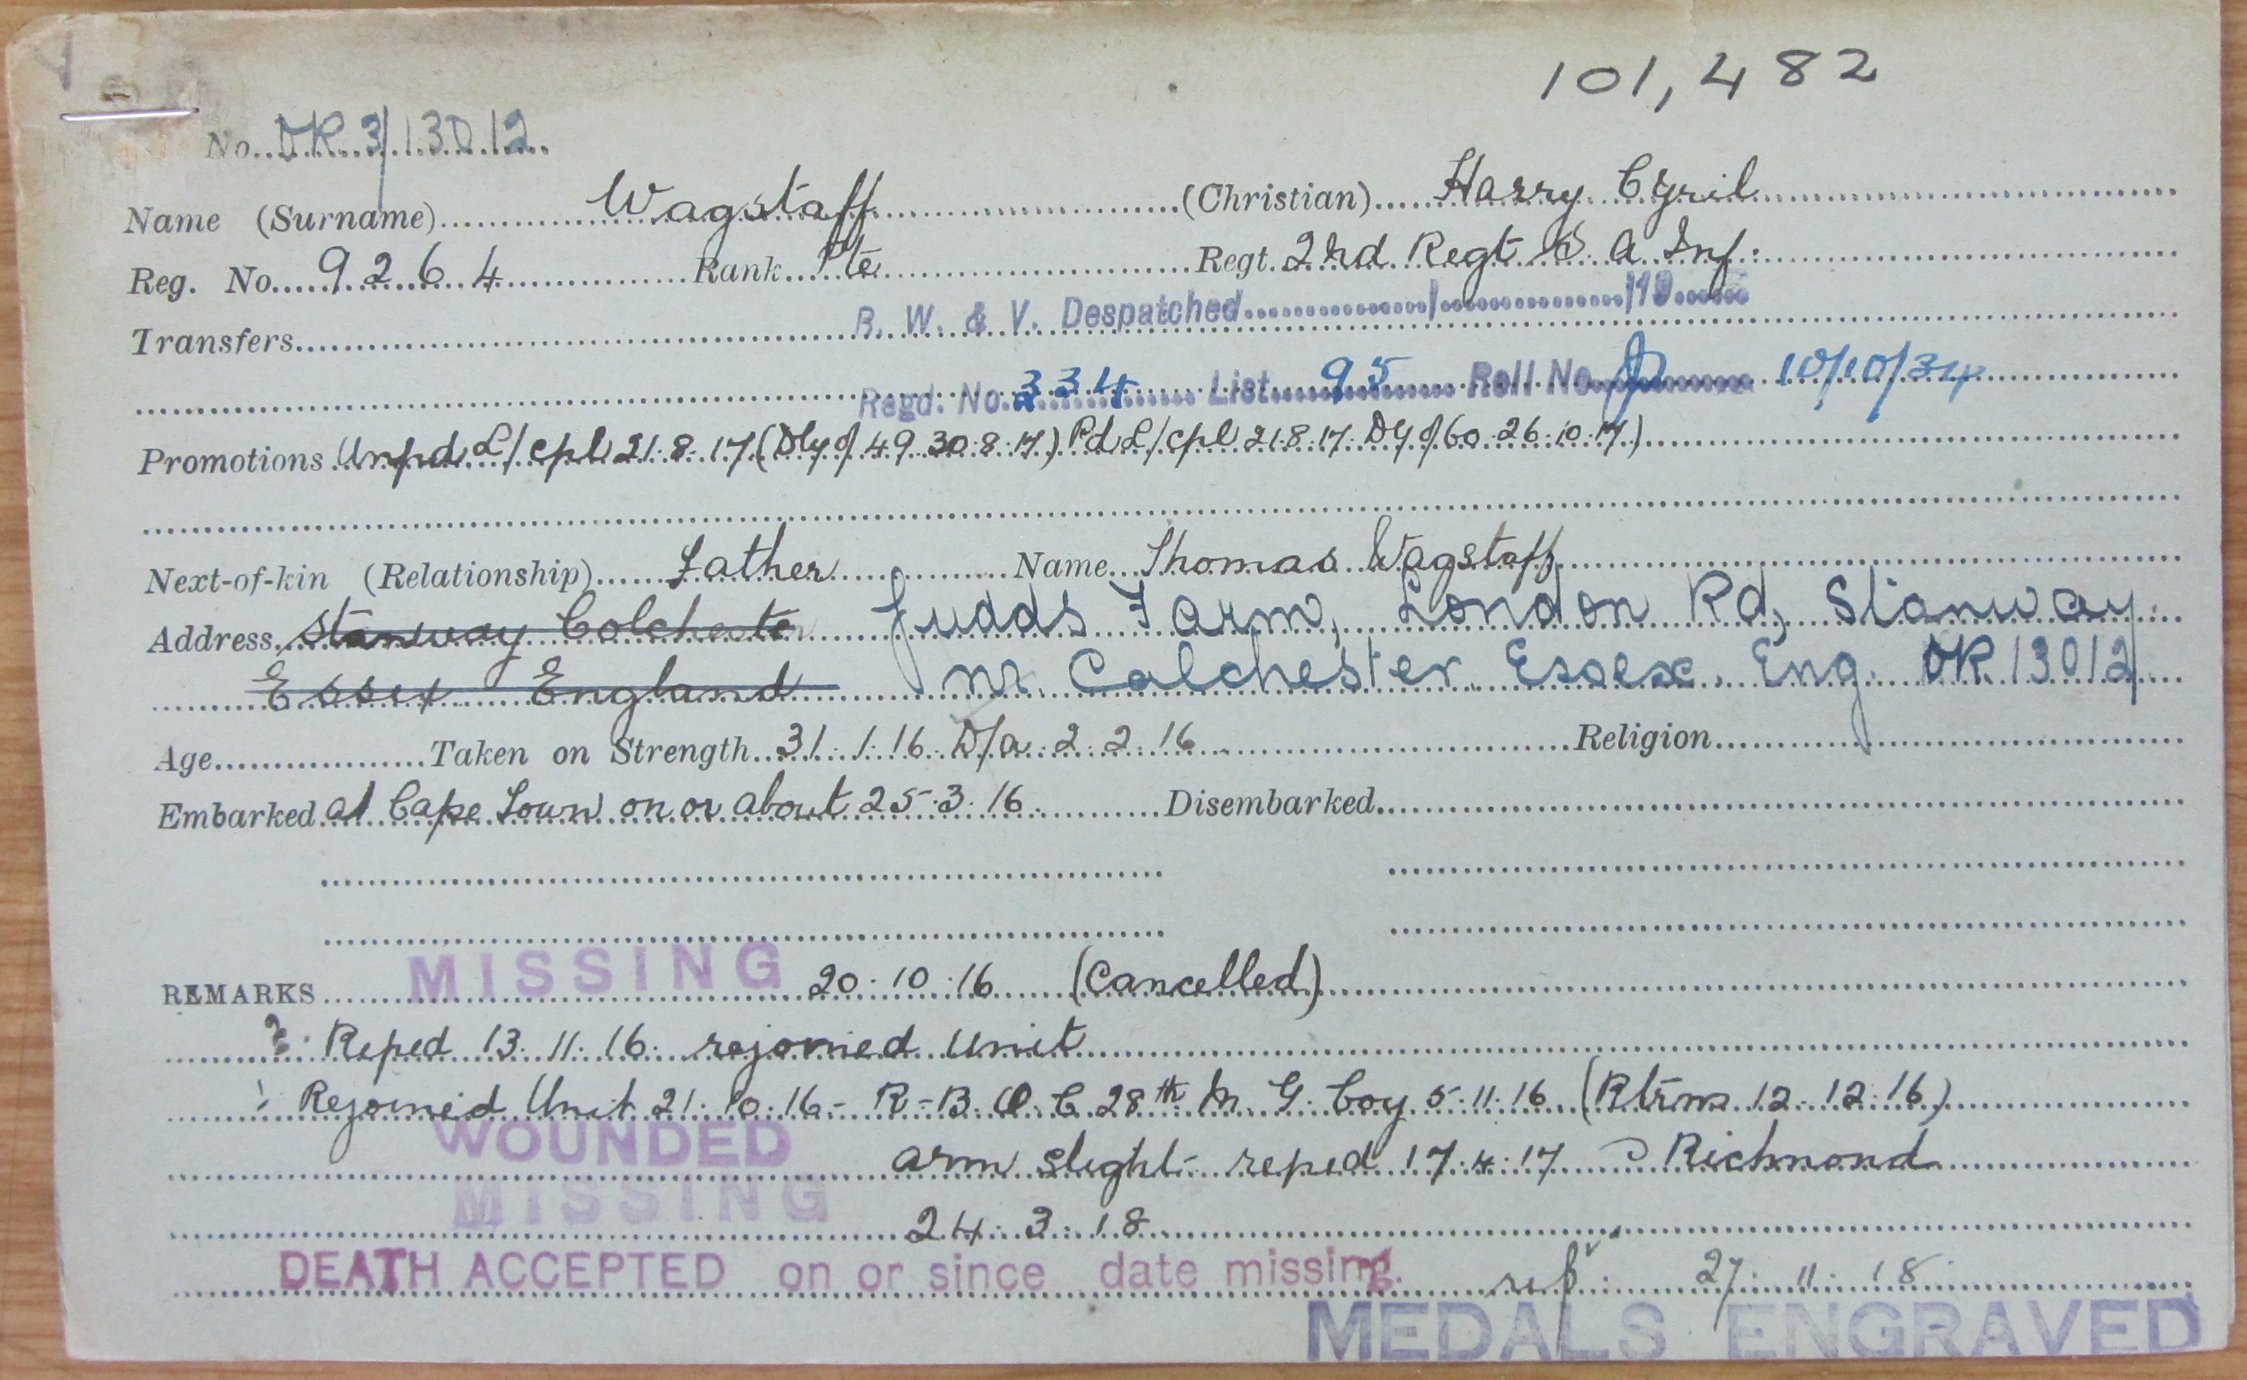 101,482
No. DR 3/13012
Name (Surname) Wagstaff (Christian) Harry Cyril
Reg. No. 9264 Rank Pte Regt. 2nd Regt S. A Inf.
Transfers B. W. & V. Despatched / /19
Regd. No. 334 List 95 Roll No. 10/10/34
Promotions Unpd L/Cpl 21.8.17 (Dly o/ 49 30.8.17) Pd L/Cpl 21.8.17. DY o/ 60. 26.10.17)
Next-of-kin (Relationship) Father Name Thomas Wagstaff
Address Stanway Colchester Judds Farm, London Rd, Stanway.
Essex England nr. Colchester. Essex. Eng. DR 13012
Age Taken on Strength 31.1.16 D/a 2.2.16 Religion
Embarked at Cape Town on or about 25.3.16. Disembarked
REMARKS MISSING 20.10.16 (Cancelled)
2. Reped 13.11.16. rejoined Unit
1 Rejoined Unit 21.10.16 - R-B O.C 28th M. G. Coy 5.11.16 (Rtrns 12.12.16)
WOUNDED arm slight - reped 17.4.17 Richmond
MISSING 24.3.18
DEATH ACCEPTED on or since date missing. 27.11.18
MEDALS ENGRAVED